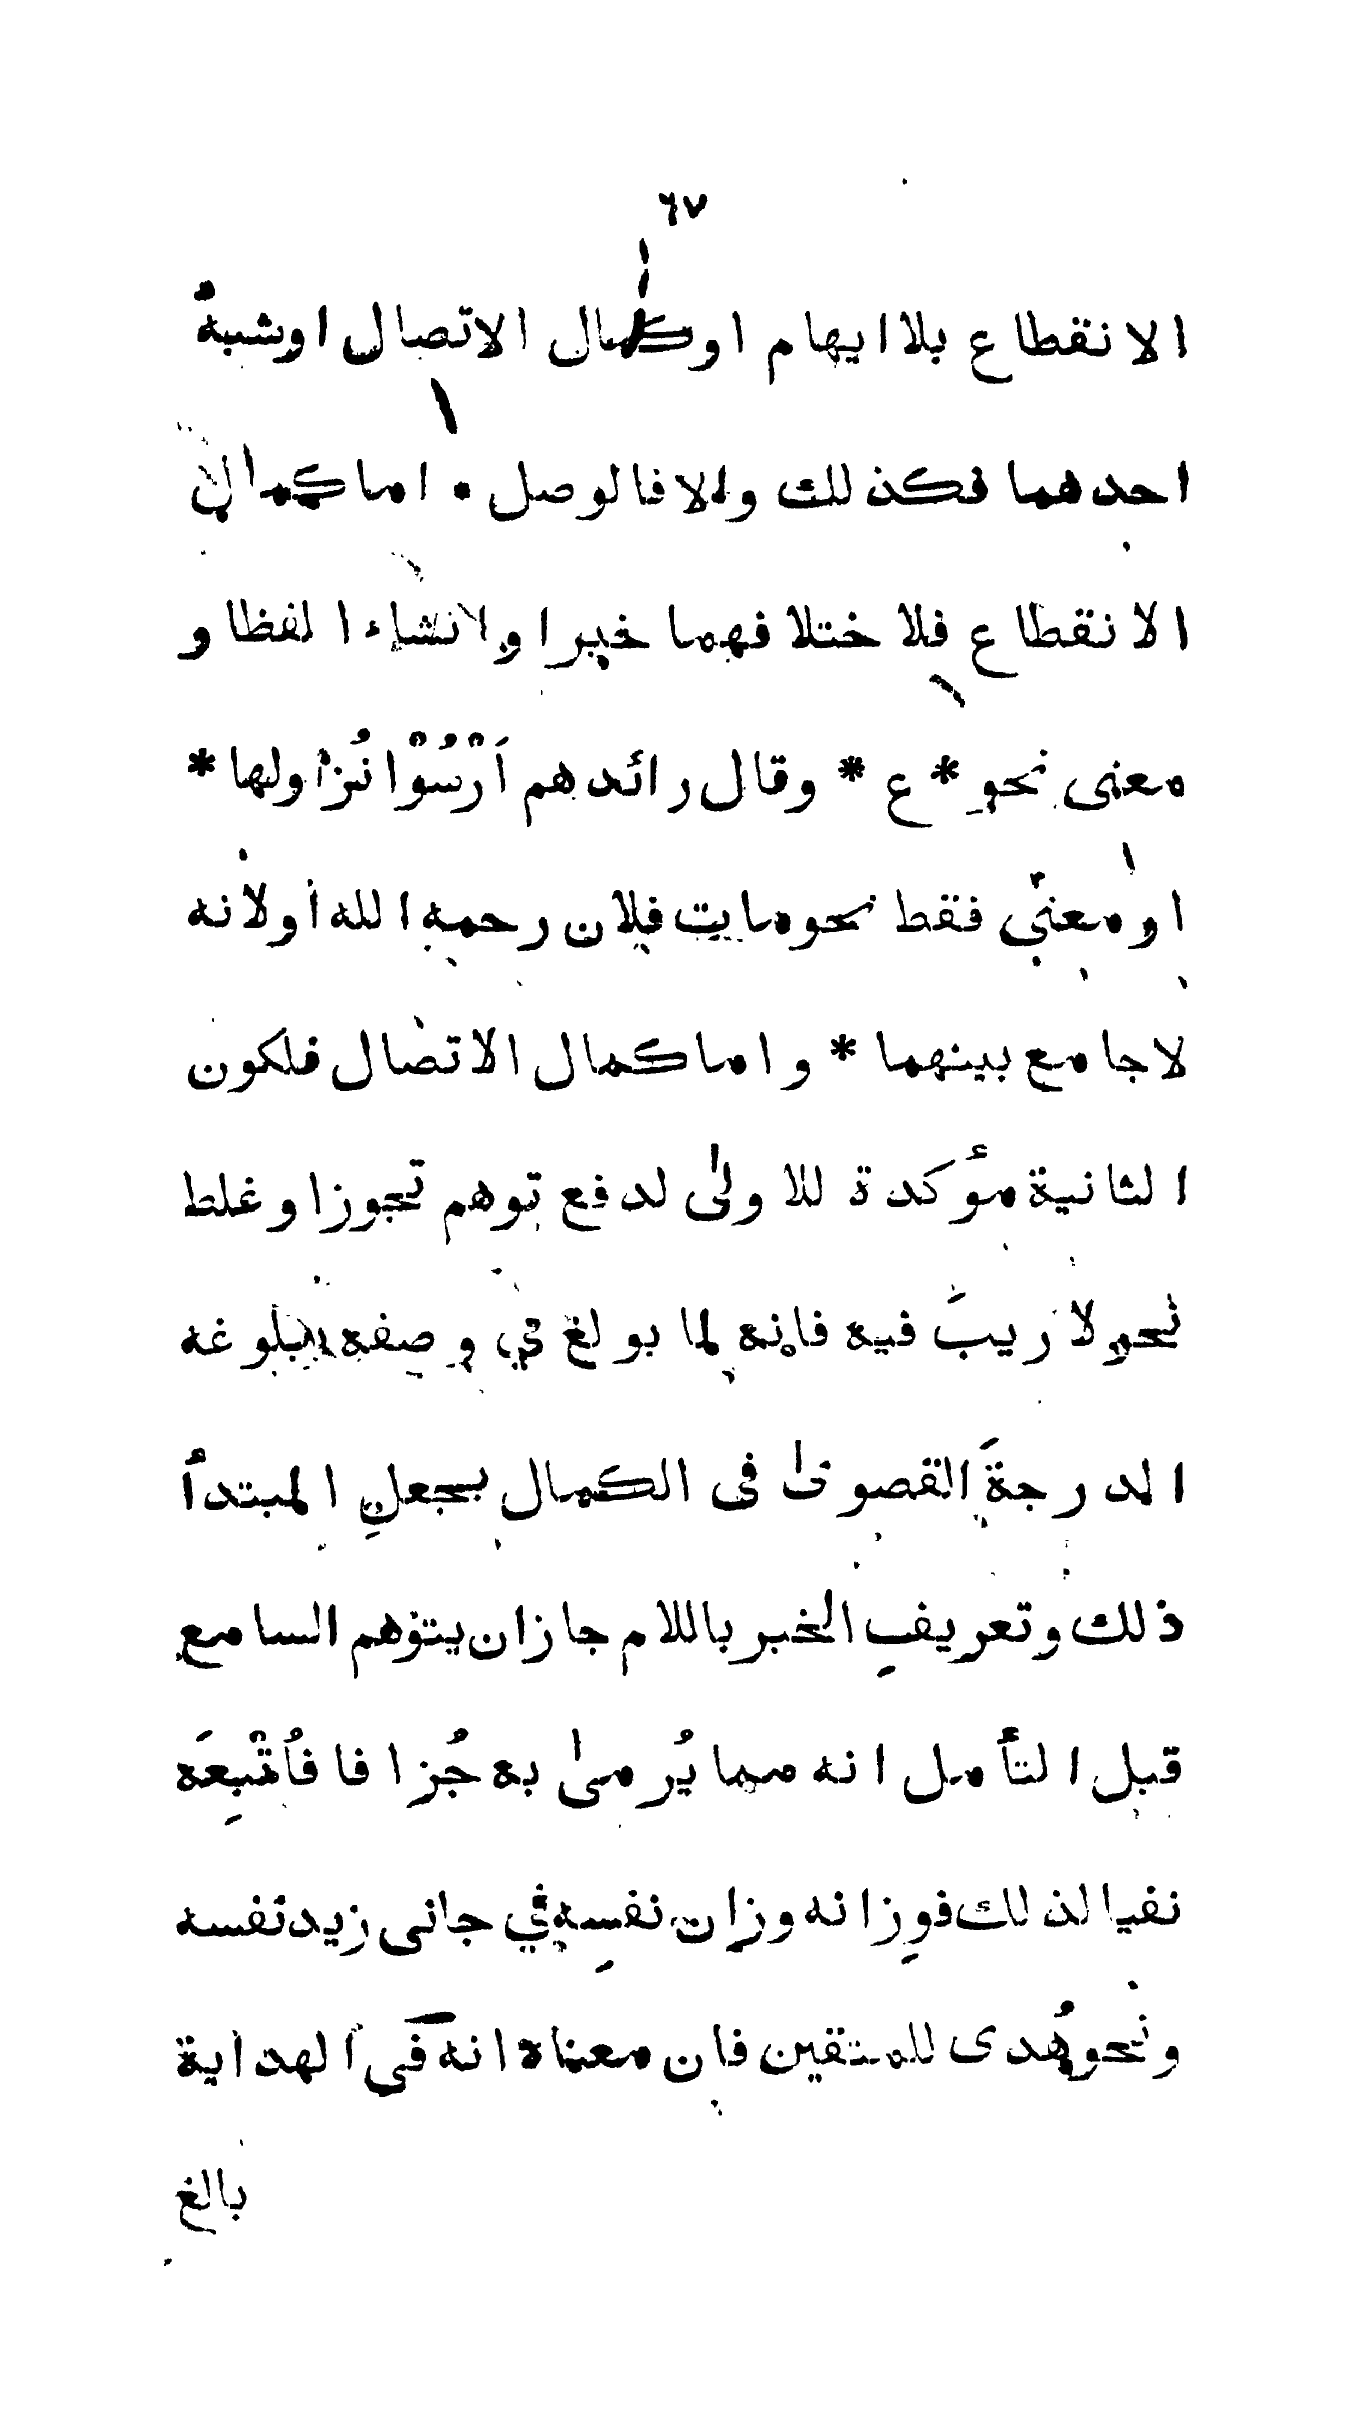 ٦٧
الانقطاع بلا ايهام او كمال الاتصال او شبه
احدهما فكذلك والا فالوصل • اما كمال
الانقطاع فلاختلافهما خبرا وانشاء لفظا و
معنى نحو * ع * وقال رائدهم اَرْسُوْا نُزاولها *
او معنى فقط نحو مات فلان رحمه الله او لانه
لا جامع بينهما * واما كمال الاتصال فلكون
الثانية مؤكدة للاولىٰ لدفع توهم تجوز او غلط
نحو لا ريبَ فيه فانه لما بولغ في وصفه ببلوغه
الدرجةَ القصوىٰ فى الكمال بجعلِ المبتدأ
ذلك وتعريفِ الخبر باللام جاز ان يتوهم السامع
قبل التأمل انه مما يُرمىٰ به جُزافا فاُتْبِعَه
نفيا لذلك فوِزانه وزان نفسِه في جانى زيد نفسه
ونحو هُدى للمتقين فان معناه انه فى الهداية
بالغ